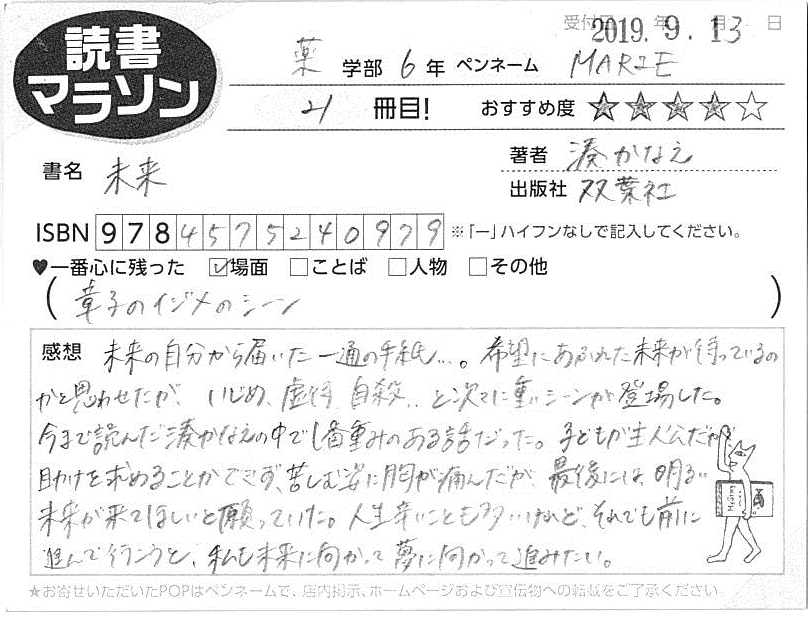 読書
マラソン
受付日 2019年9月13日
薬学部6年 ペンネーム MARIE
21冊目! おすすめ度 ★★★★☆
書名 未来
著者 湊かなえ
出版社 双葉社
ISBN 9784575240979 ※「ー」ハイフンなしで記入してください。
♥一番心に残った ☑場面 □ことば □人物 □その他
(章子のイジメのシーン)
感想 未来の自分から届いた一通の手紙…。希望にあふれた未来が待っているの
かと思わせたが、いじめ、虐待、自殺…と次々に重いシーンが登場した。
今まで読んだ湊かなえの中で1番重みのある話だった。子どもが主人公だが
助けを求めることができず、苦しむ姿に胸が痛んだが、最後には、明るい
未来が来てほしいと願っていた。人生辛いことも多いけれど、それでも前に
進んで行こうと、私も未来に向かって夢に向かって進みたい。
★お寄せいただいたPOPはペンネームで、店内掲示、ホームページおよび宣伝物への転載をご了承ください。